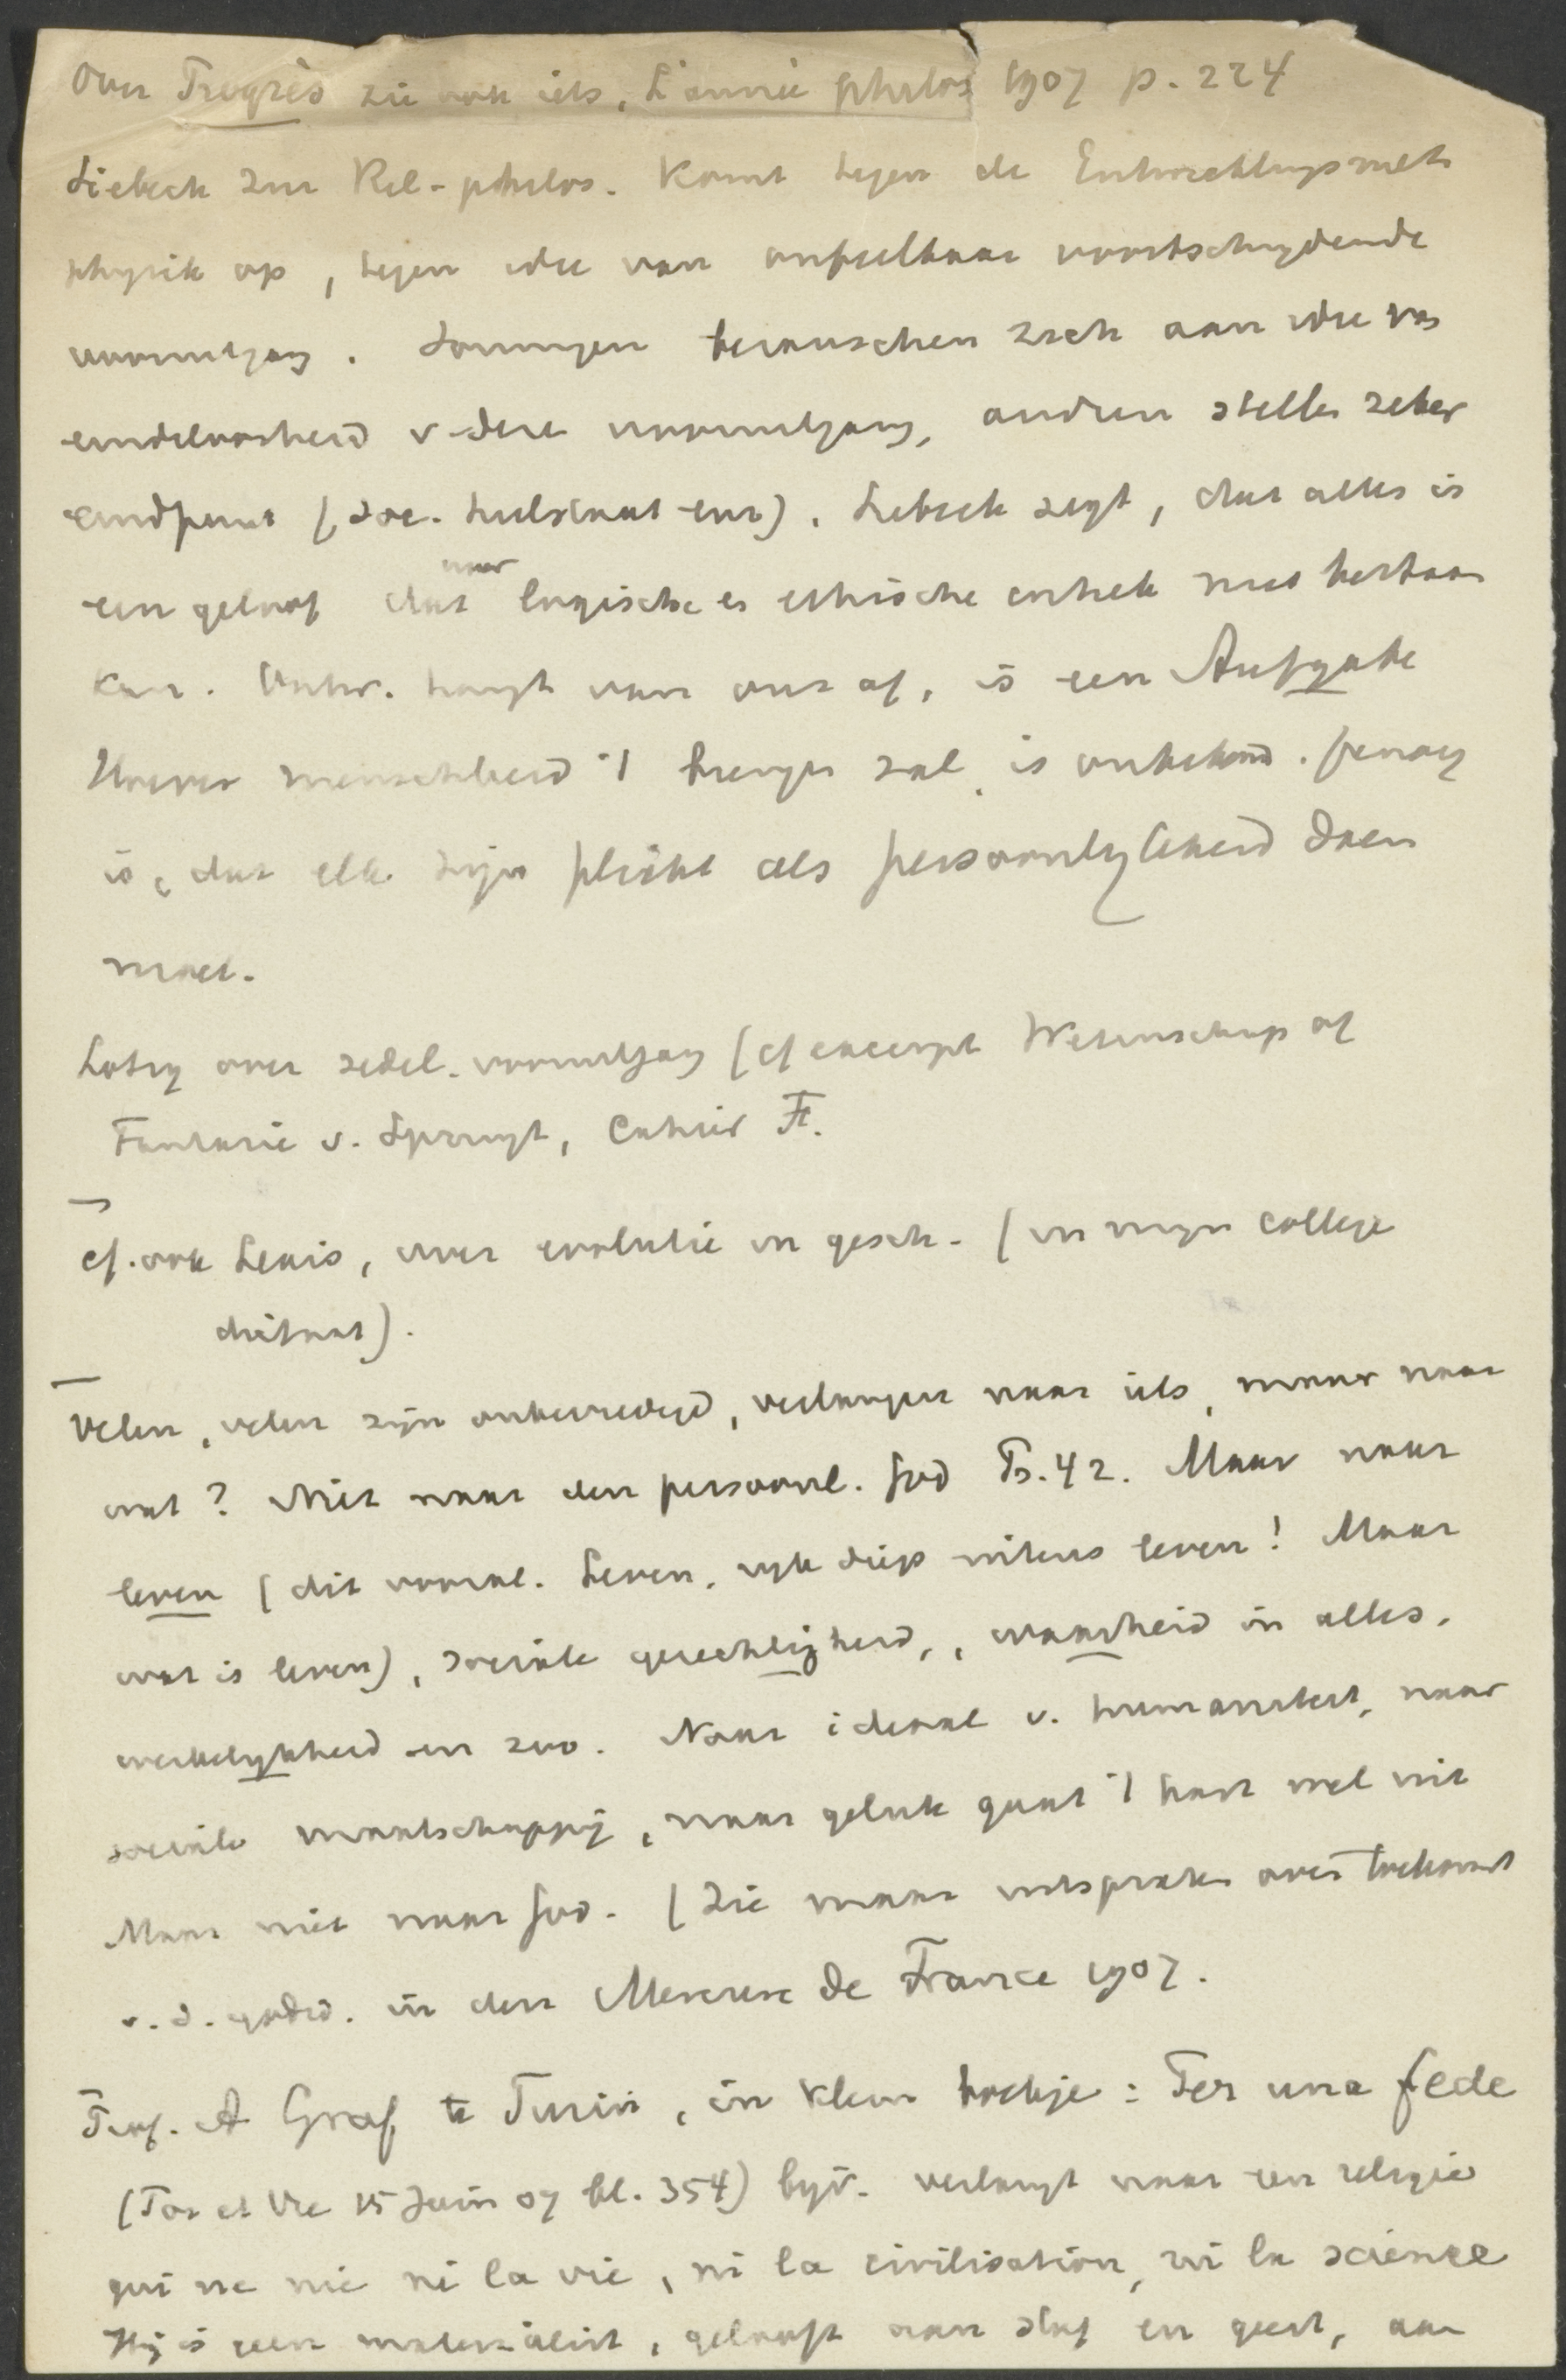 Over Progrès zie ook iets, L'année philos 1907 p. 224
Siebeck zur Rel-philos. komt tegen de Entwicklungsmeta
physik op, tegen idee van onfeilbaar voortschrijdende
vooruitgang. Sommigen berauschen zich aan idee van
eindeloosheid v. deze vooruitgang, andren stellen zeker
eindpunt (soc. heilstaat enz). Siebeck zegt, dat alles is
een geloof dat voor logische en ethische critiek niet bestaan
kan. Ontw. hangt van ons af, is een Aufgabe
Hoever menschheid 't brengen zal, is onbekend. Genoeg
is, dat elk zijn plicht als persoonlijkheid doen
moet.
Lotze over zedel. vooruitgang (cf excerpt Wetenschap of
Fantasie v. Spruyt, Cahier F.
cf. ook Lexis, over evolutie in gesch. (in mijn college
dictaat).
Velen, velen zijn onbevredigd, verlangen naar iets, maar naar
wat? Niet naar den persoonl. God Ps. 42. Maar naar
leven (dit vooral. Leven, rijk diep intens leven! Maar
wat is leven), sociale gerechtigheid, waarheid in alles,
werkelijkheid en zoo. Naar ideaal v. humaniteit, naar
sociale maatschappij, naar geluk gaat 't hart wel uit
Maar niet naar God. (Zie maar uitspraken over toekomst
v. d. godsd. in den Mercure de France 1907.
Prof. A Graf te Turin, in klein boekje: Per una fede
(Foi et Vie 15 Juin 07 bl. 354) bijv. verlangt naar een religie
qui ne nie ni la vie, ni la civilisation, ni la science
Hij is geen materialist, gelooft aan stof en geest, aan